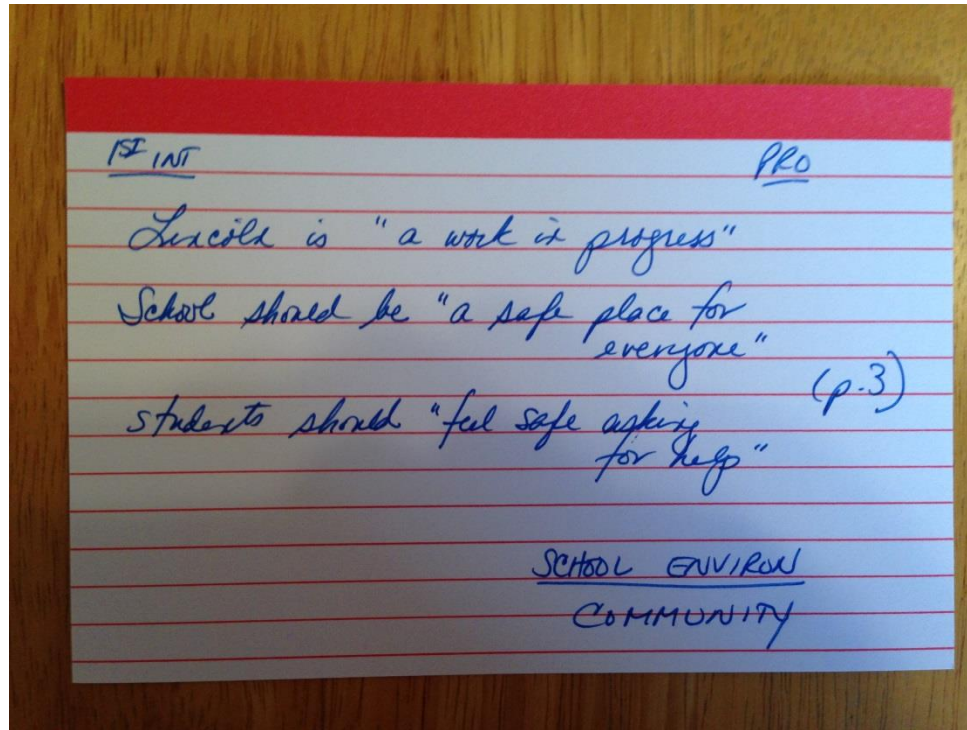 1ST INT PRO
Lincoln is "a work in progress"
School should be "a safe place for
everyone"
(p.3)
students should "feel safe asking
for help"
SCHOOL ENVIRON
COMMUNITY